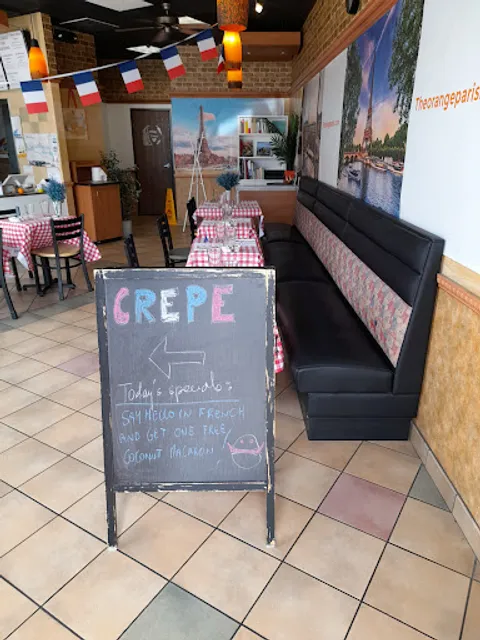 Theorangeparis
CREPE
Today's specials:
SAY HELLO IN FRENCH
AND GET ONE FREE
COCONUT MACARON